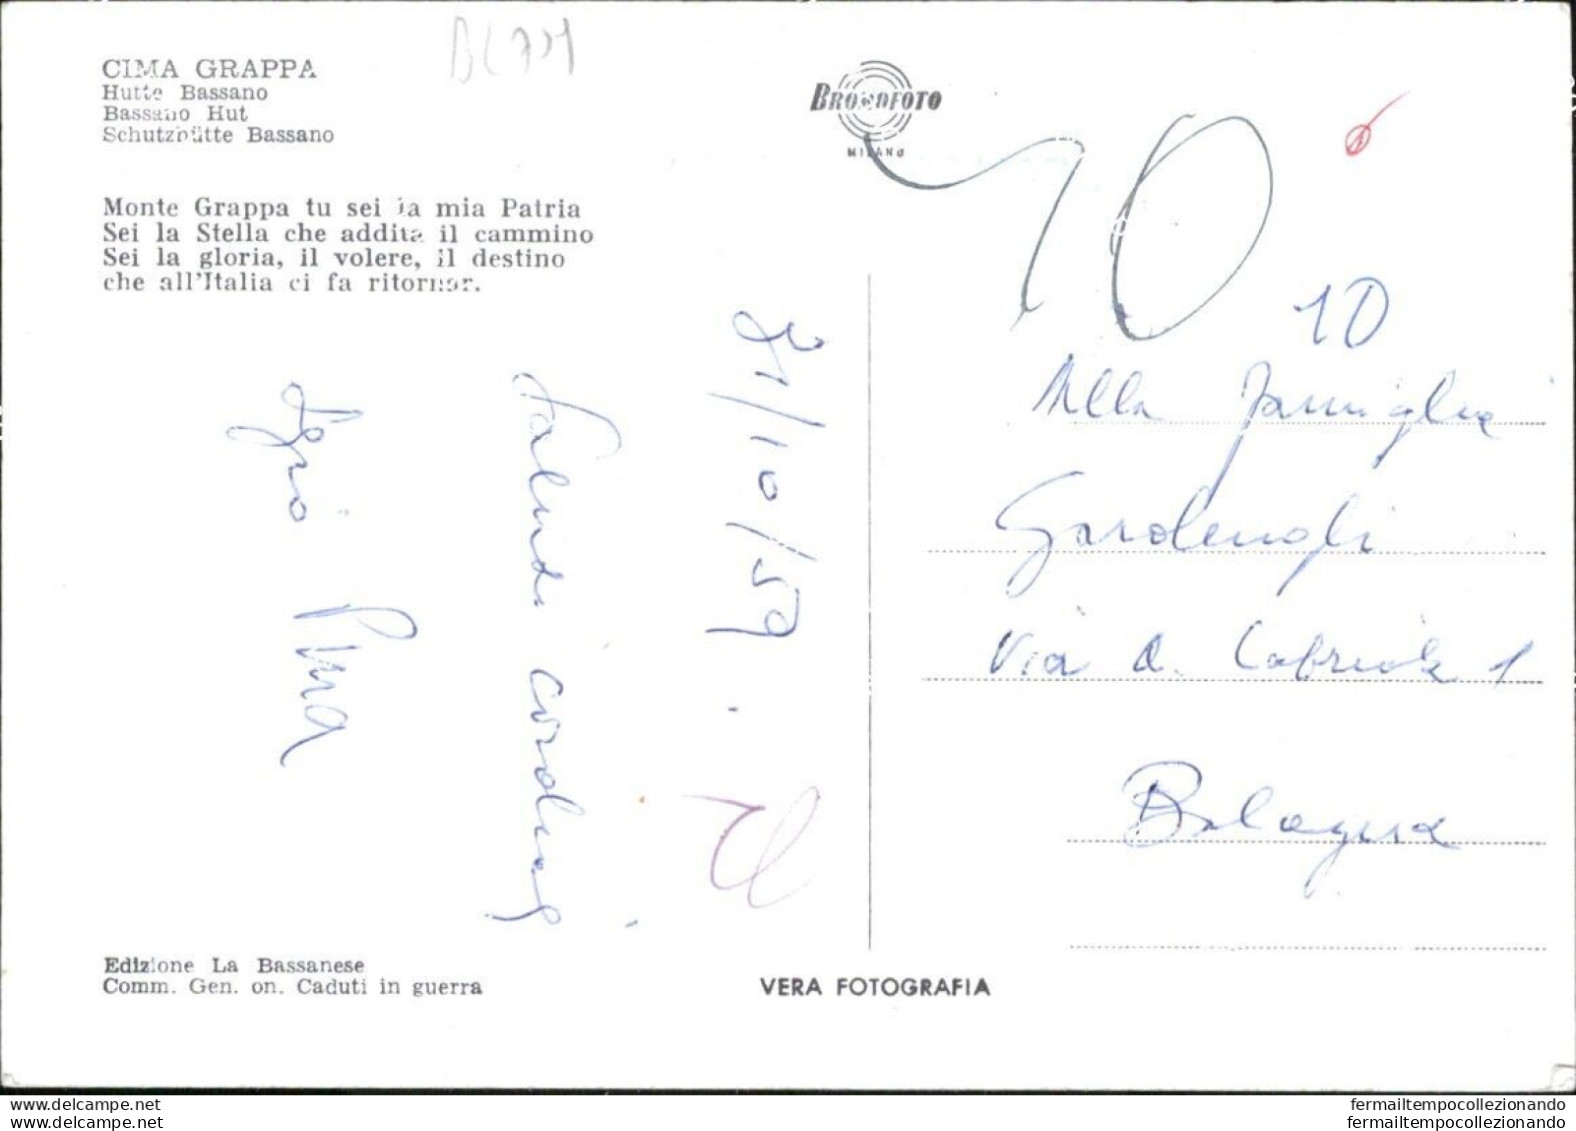 BL731
CIMA GRAPPA
Hutte Bassano
Bassano Hut
Schutzhütte Bassano
BROMOFOTO
MILANO
Monte Grappa tu sei la mia Patria
Sei la Stella che addita il cammino
Sei la gloria, il volere, il destino
che all'Italia ci fa ritornar.
10
10
31/10/59.
Saluti cordiali
Alla Famiglia
Via A.
1
Bologna
Edizione La Bassanese
Comm. Gen. on. Caduti in guerra
VERA FOTOGRAFIA
fermailtempocollezionando
fermailtempocollezionando
fermailtempocollezionando
fermailtempocollezionando